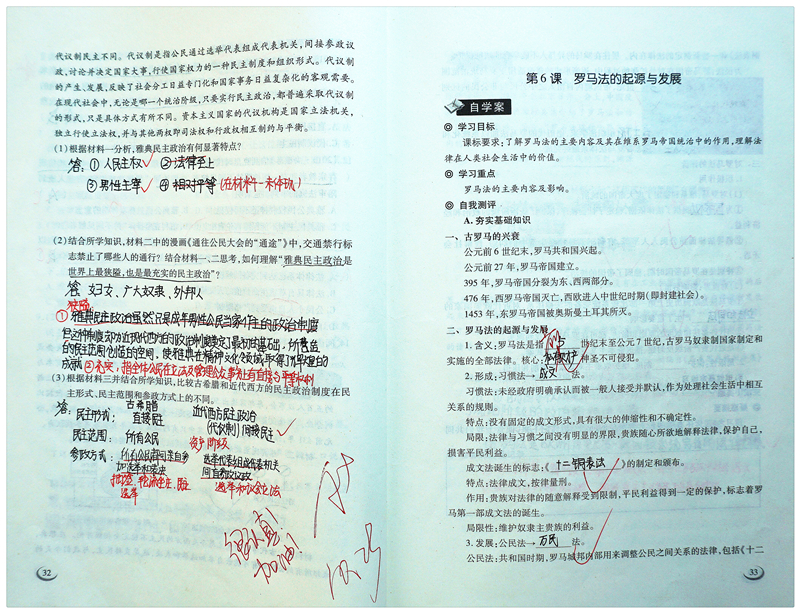 代议制民主不同。代议制是指公民通过选举代表组成代表机关，间接参政议
政，讨论并决定国家大事，行使国家权力的一种民主制度和组织形式。代议制
的产生、发展，反映了社会分工日益专门化和国家事务日益复杂化的客观需要。
在现代社会中，无论是哪一个统治阶级，只要实行民主政治，都普遍采取代议制
的形式，只是具体方式有所不同。资本主义国家的代议机构是国家立法机关，
独立行使立法权，并与其他两权即司法权和行政权相互制约与平衡。
(1)根据材料一分析，雅典民主政治有何显著特点?
答：① 人民主权 ② 法律至上
③ 男性主宰 ④ 相对平等 (在材料一未体现)
(2)结合所学知识，材料二中的漫画《通往公民大会的“通途”》中，交通禁行标
志禁止了哪些人的通行? 结合材料一、二思考，如何理解“雅典民主政治是
世界上最狭隘，也是最充实的民主政治”?
答 妇女、广大奴隶、外邦人
狭隘：
① 雅典民主政治虽然只是成年男性公民当家作主的政治制度
但这种制度却为近现代西方的政治制度奠定了最初的基础，所营造
的民主氛围创造的空间，使雅典在精神文化领域取得了辉煌的
成就 ② 充实：指全体公民在立法及管理公众事务上有直接与平等权利
(3)根据材料三并结合所学知识，比较古希腊和近代西方的民主政治制度在民
主形式、民主范围和参政方式上的不同。
答： 古希腊 近代西方民主政治
民主形式： 直接民主 (代议制) 间接民主
民主范围： 所有公民 资产阶级
参政方式： 所有公民都可亲自参 选举代表组成代表机关
加改革和表决 间接参政议政
抽签、轮流坐庄、陪 选举和议会立法
选举
须认真!
加油!
32
第 6 课 罗马法的起源与发展
自学案
学习目标
课标要求：了解罗马法的主要内容及其在维系罗马帝国统治中的作用，理解法
律在人类社会生活中的价值。
学习重点
罗马法的主要内容及影响。
自我测评
A. 夯实基础知识
一、古罗马的兴衰
公元前 6 世纪末，罗马共和国兴起。
公元前 27 年，罗马帝国建立。
395 年，罗马帝国分裂为东、西两部分。
476 年，西罗马帝国灭亡，西欧进入中世纪时期(即封建社会)。
1453 年，东罗马帝国被奥斯曼土耳其所灭。
二、罗马法的起源与发展
1. 含义：罗马法是指 前5 世纪末至公元 7 世纪，古罗马奴隶制国家制定和
实施的全部法律。核心： 神圣不可侵犯。
2. 形成：习惯法→ 成文 法。
习惯法：未经政府明确承认而被一般人接受并默认，作为处理社会生活中相互
关系的规则。
特点：没有固定的成文形式，具有很大的伸缩性和不确定性。
局限：法律与习惯之间没有明显的界限，贵族随心所欲地解释法律，保护自己，
损害平民利益。
成文法诞生的标志：《 十二铜表法 》的制定和颁布。
特点：法律成文，按律量刑。
作用：贵族对法律的随意解释受到限制，平民利益得到一定的保护，标志着罗
马第一部成文法的诞生。
局限性：维护奴隶主贵族的利益。
3. 发展：公民法→ 万民 法。
公民法：共和国时期，罗马城邦内部用来调整公民之间关系的法律，包括《十二
33